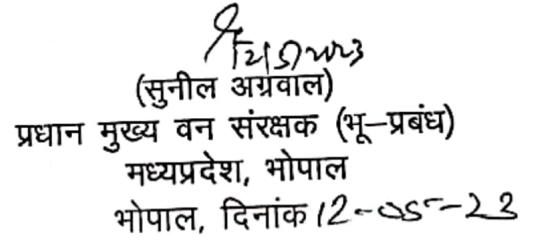 12/5/2023
(सुनील अग्रवाल)
प्रधान मुख्य वन संरक्षक (भू–प्रबंध)
मध्यप्रदेश, भोपाल
भोपाल, दिनांक 12-05-23